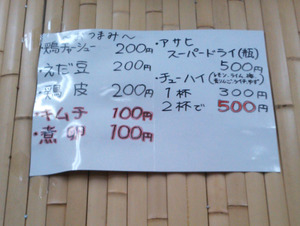 おつまみ〜
・鶏チャーシュー 200円
・えだ豆 200円
・鶏皮 200円
・キムチ 100円
・煮卵 100円
・アサヒ
スーパードライ(瓶)
500円
・チューハイ
1杯 300円
2杯で 500円